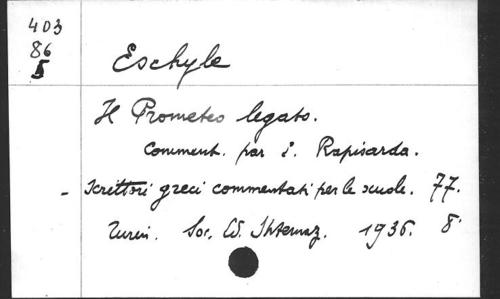 403
86
5
Eschyle
Il Prometeo legato.
Comment. par E. Rapisarda.
- Scrittori greci commentati per le scuole. 77.
Turin. Soc. Ed. Internaz. 1936. 8°